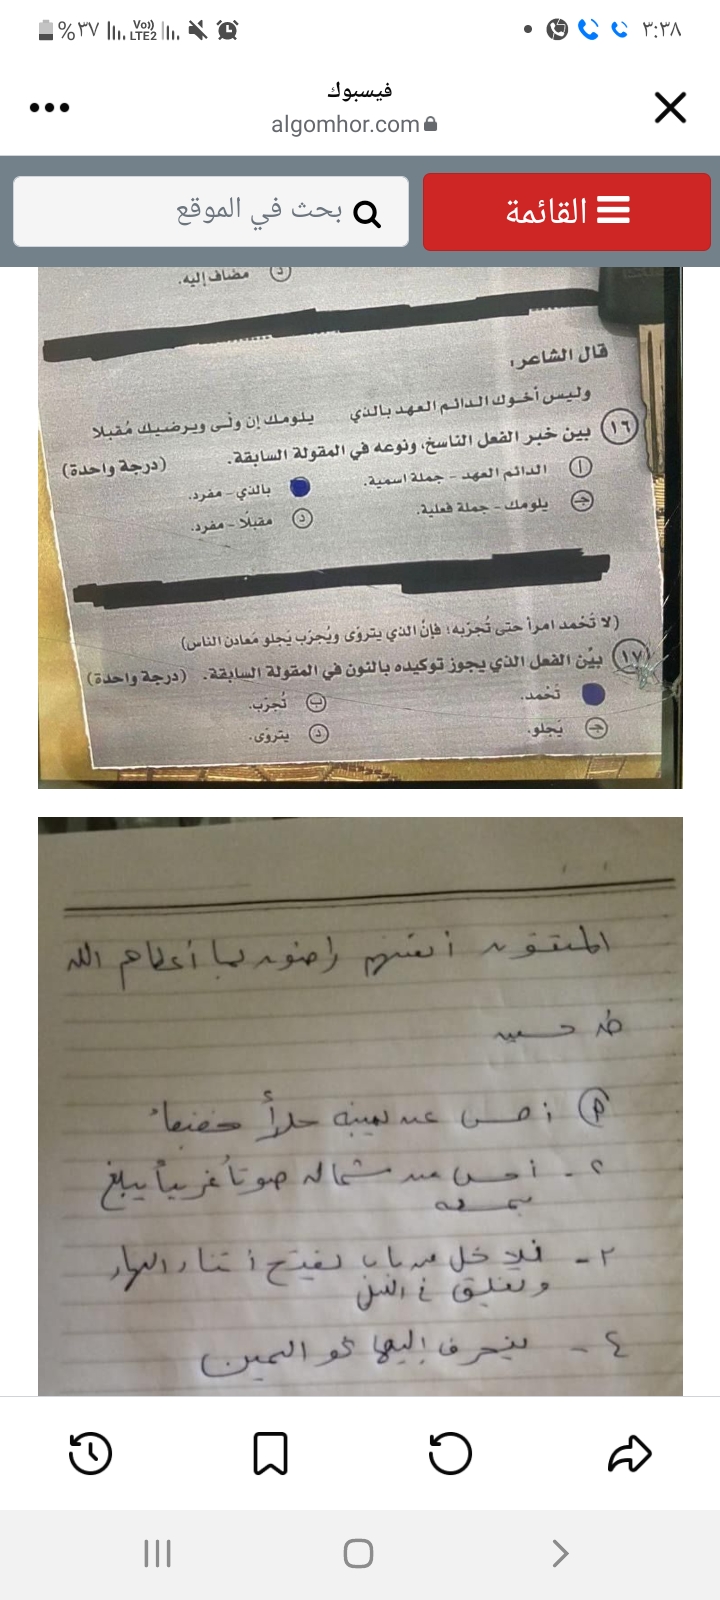 %٣٧ Vo)) LTE2 ٣:٣٨
فيسبوك
algomhor.com
القائمة
بحث في الموقع
د مضاف إليه.
قال الشاعر:
وليس أخوك الدائم العهد بالذي يلومك إن ولّى ويرضيك مُقبلا
١٦ بين خبر الفعل الناسخ، ونوعه في المقولة السابقة. (درجة واحدة)
أ الدائم العهد - جملة اسمية. بالذي - مفرد.
ج يلومك - جملة فعلية. د مقبلًا - مفرد.
(لا تَحْمد امرأ حتى تُجرّبه؛ فإنّ الذي يتروّى ويُجرّب يَجلو مَعادن الناس)
١٧ بيّن الفعل الذي يجوز توكيده بالنون في المقولة السابقة. (درجة واحدة)
تَحْمد. ب تُجرّب.
ج يَجلو. د يتروّى.
راضون بما أعطاهم الله
طه حسين
أحس عن يمينه
٢ - أحس من شماله صوتاً غريباً يبلغ
سمعه
٣ - باب يفتح أثناء النهار
ويغلق في الليل
٤ - ينحرف إليها نحو اليمين